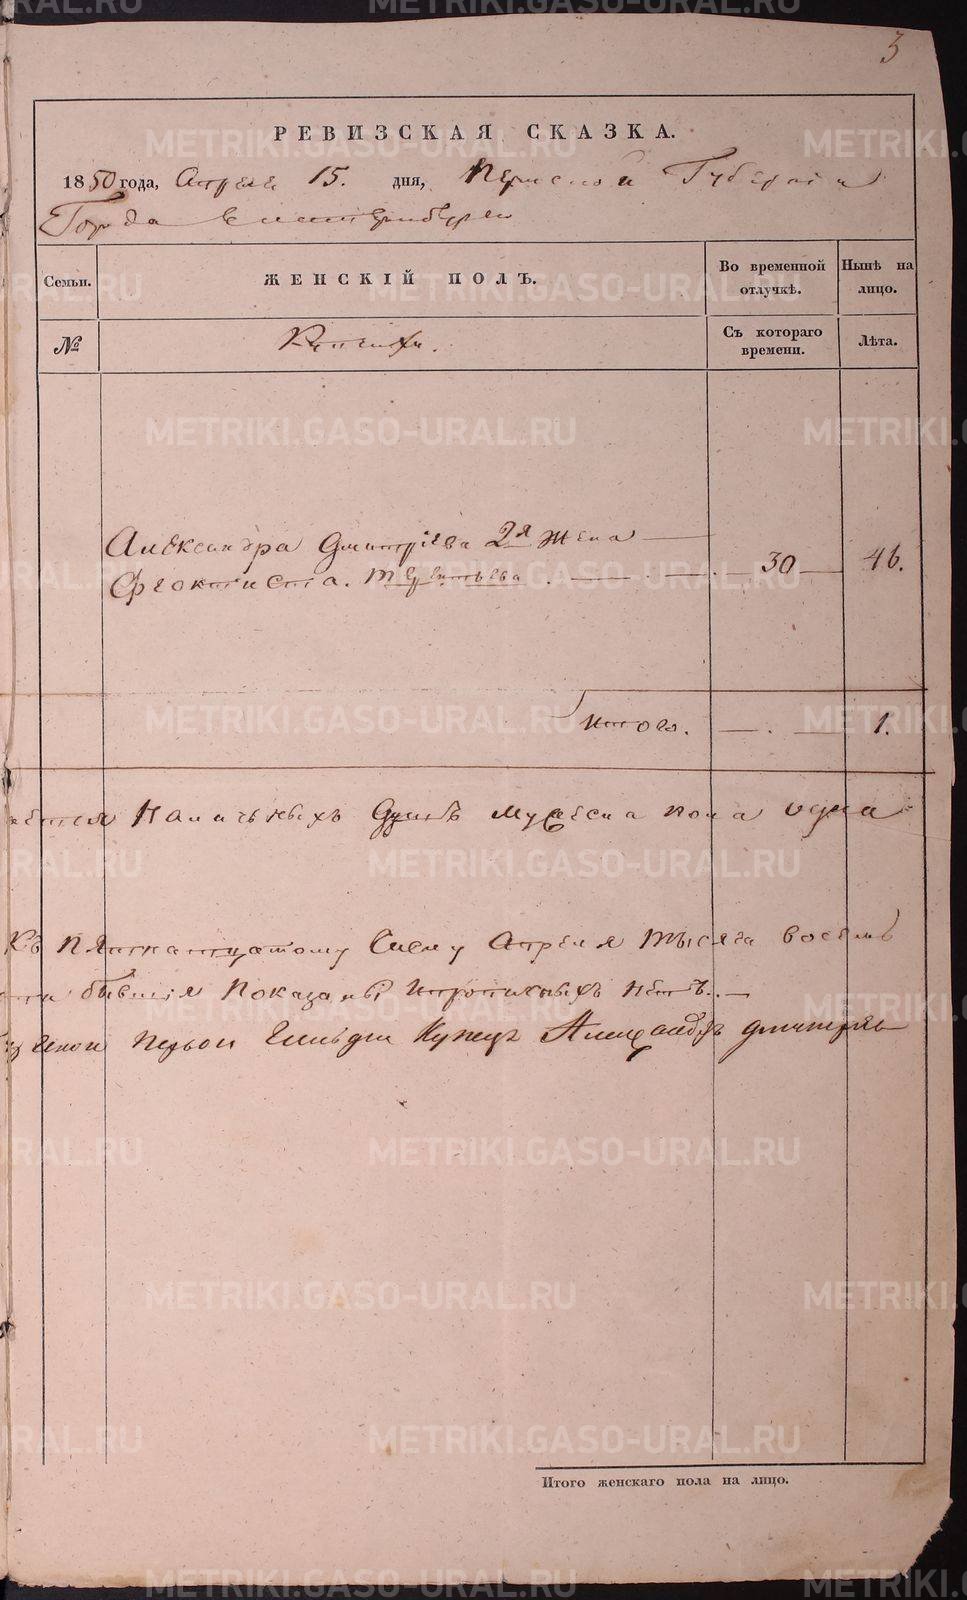 3
РЕВИЗСКАЯ СКАЗКА.
1850 года, Апреля 15. дня, Пермской Губернiи
Города Екатеринбурга
Семьи. ЖЕНСКІЙ ПОЛЪ. Во временной отлучкѣ. Нынѣ на лицо.
№ Съ котораго времени. Лѣта.
Александра Дмитрiева 2я жена
Феоктиста. Терентьева. — 30 — 46.
Итого. — . — 1.
Наличныхъ душъ мужеска пола одна
Къ пятнатцатому числу Апреля тысяча восемь
бывшiя показаны прописныхъ нѣтъ. —
первой гильдiи Купецъ Александръ Дмитрiев
Итого женскаго пола на лицо.
METRIKI.GASO-URAL.RU